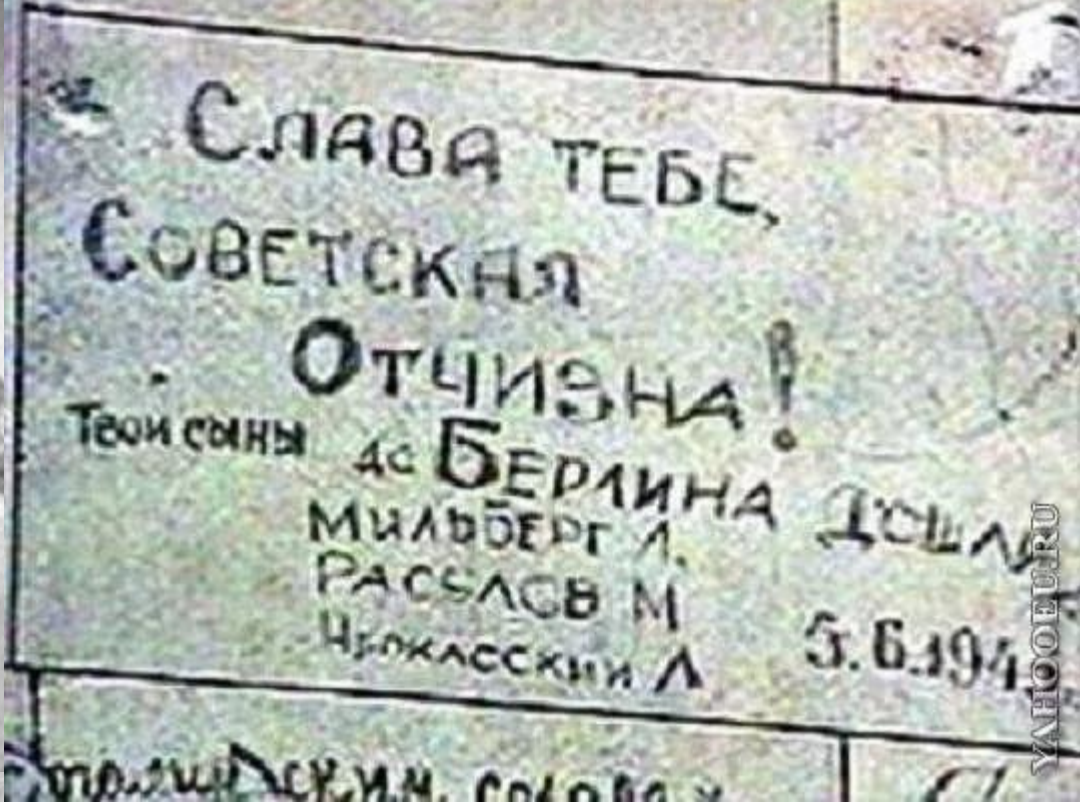 Слава тебе,
Советская
Отчизна!
Твои сыны до Берлина дошли
Мильберг Л.
Расулов М
Л
5.6.194
YAHOOEU.RU